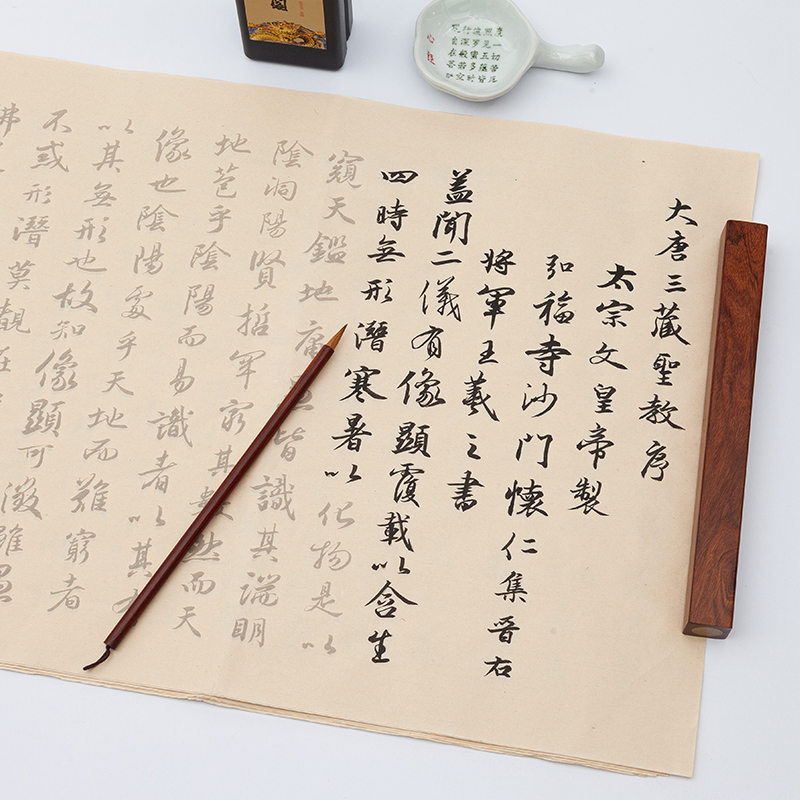 大唐三藏聖教序
太宗文皇帝製
弘福寺沙門懷仁集晉右
將軍王羲之書
蓋聞二儀有像顯覆載以含生
四時無形潛寒暑以化物是以
窺天鑑地庸愚皆識其端明
陰洞陽賢哲罕窮其數然而天
地苞乎陰陽而易識者以其有
像也陰陽處乎天地而難窮者
以其無形也故知像顯可徵雖愚
不惑形潛莫覩在
心經